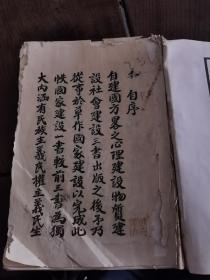 自序
自建國方畧之心理建設物質建
設社會建設三書出版之後予乃
從事於草作國家建設以完成此
帙國家建設一書較前三書為獨
大內涵有民族主義民權主義民生